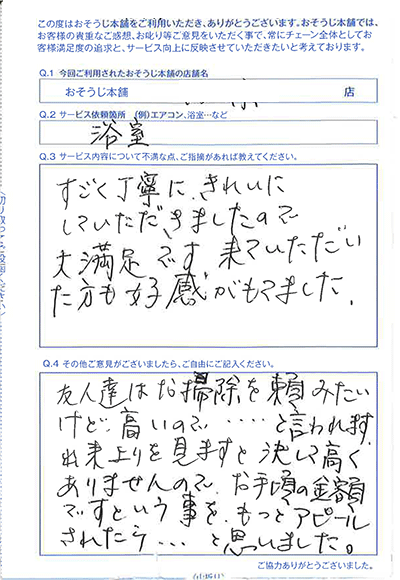 この度はおそうじ本舗をご利用いただき、ありがとうございます。おそうじ本舗では、
お客様の貴重なご感想、お叱り等ご意見をいただく事で、常にチェーン全体としてお
客様満足度の追求と、サービス向上に反映させていただきたいと考えております。
Q.1 今回ご利用されたおそうじ本舗の店舗名
おそうじ本舗 店
Q.2 サービス依頼箇所 (例)エアコン、浴室…など
浴室
Q.3 サービス内容について不満な点、ご指摘があれば教えてください。
すごく丁寧に、きれいに
していただきましたので
大満足です 来ていただい
た方も好感がもてました。
Q.4 その他ご意見がございましたら、ご自由にご記入ください。
友人達はお掃除を頼みたい
けど、高いので・・・・と言われます。
出来上りを見ますと 決して高く
ありませんので、お手頃の金額
ですという事を、もっとアピール
されたら・・・と思いました。
ご協力ありがとうございました。